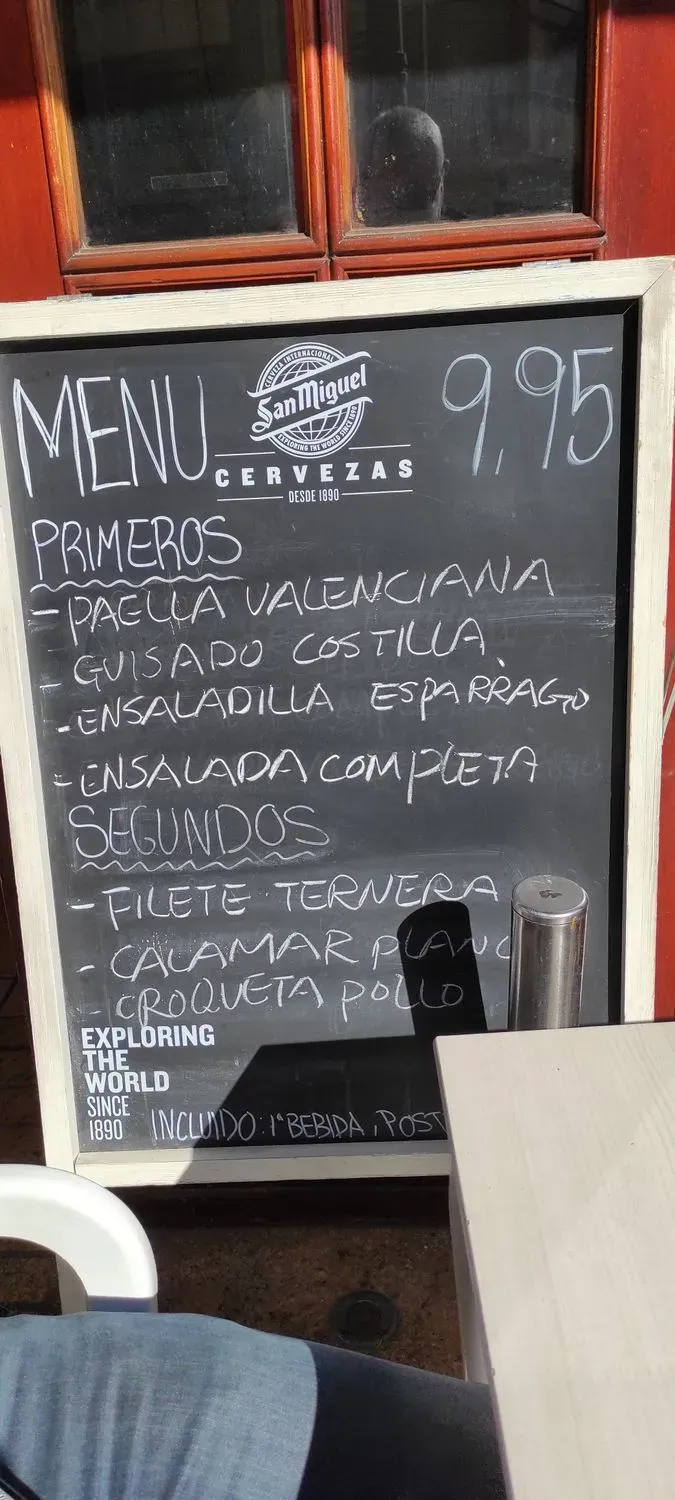 MENU
CERVEZA INTERNACIONAL
San Miguel
EXPLORING THE WORLD SINCE 1890
CERVEZAS
DESDE 1890
9,95
PRIMEROS
- PAELLA VALENCIANA
- GUISADO COSTILLA
- ENSALADILLA ESPARRAGO
- ENSALADA COMPLETA
SEGUNDOS
- FILETE TERNERA
- CALAMAR PLANC
- CROQUETA POLLO
EXPLORING
THE
WORLD
SINCE
1890
INCLUIDO: 1ª BEBIDA, POST